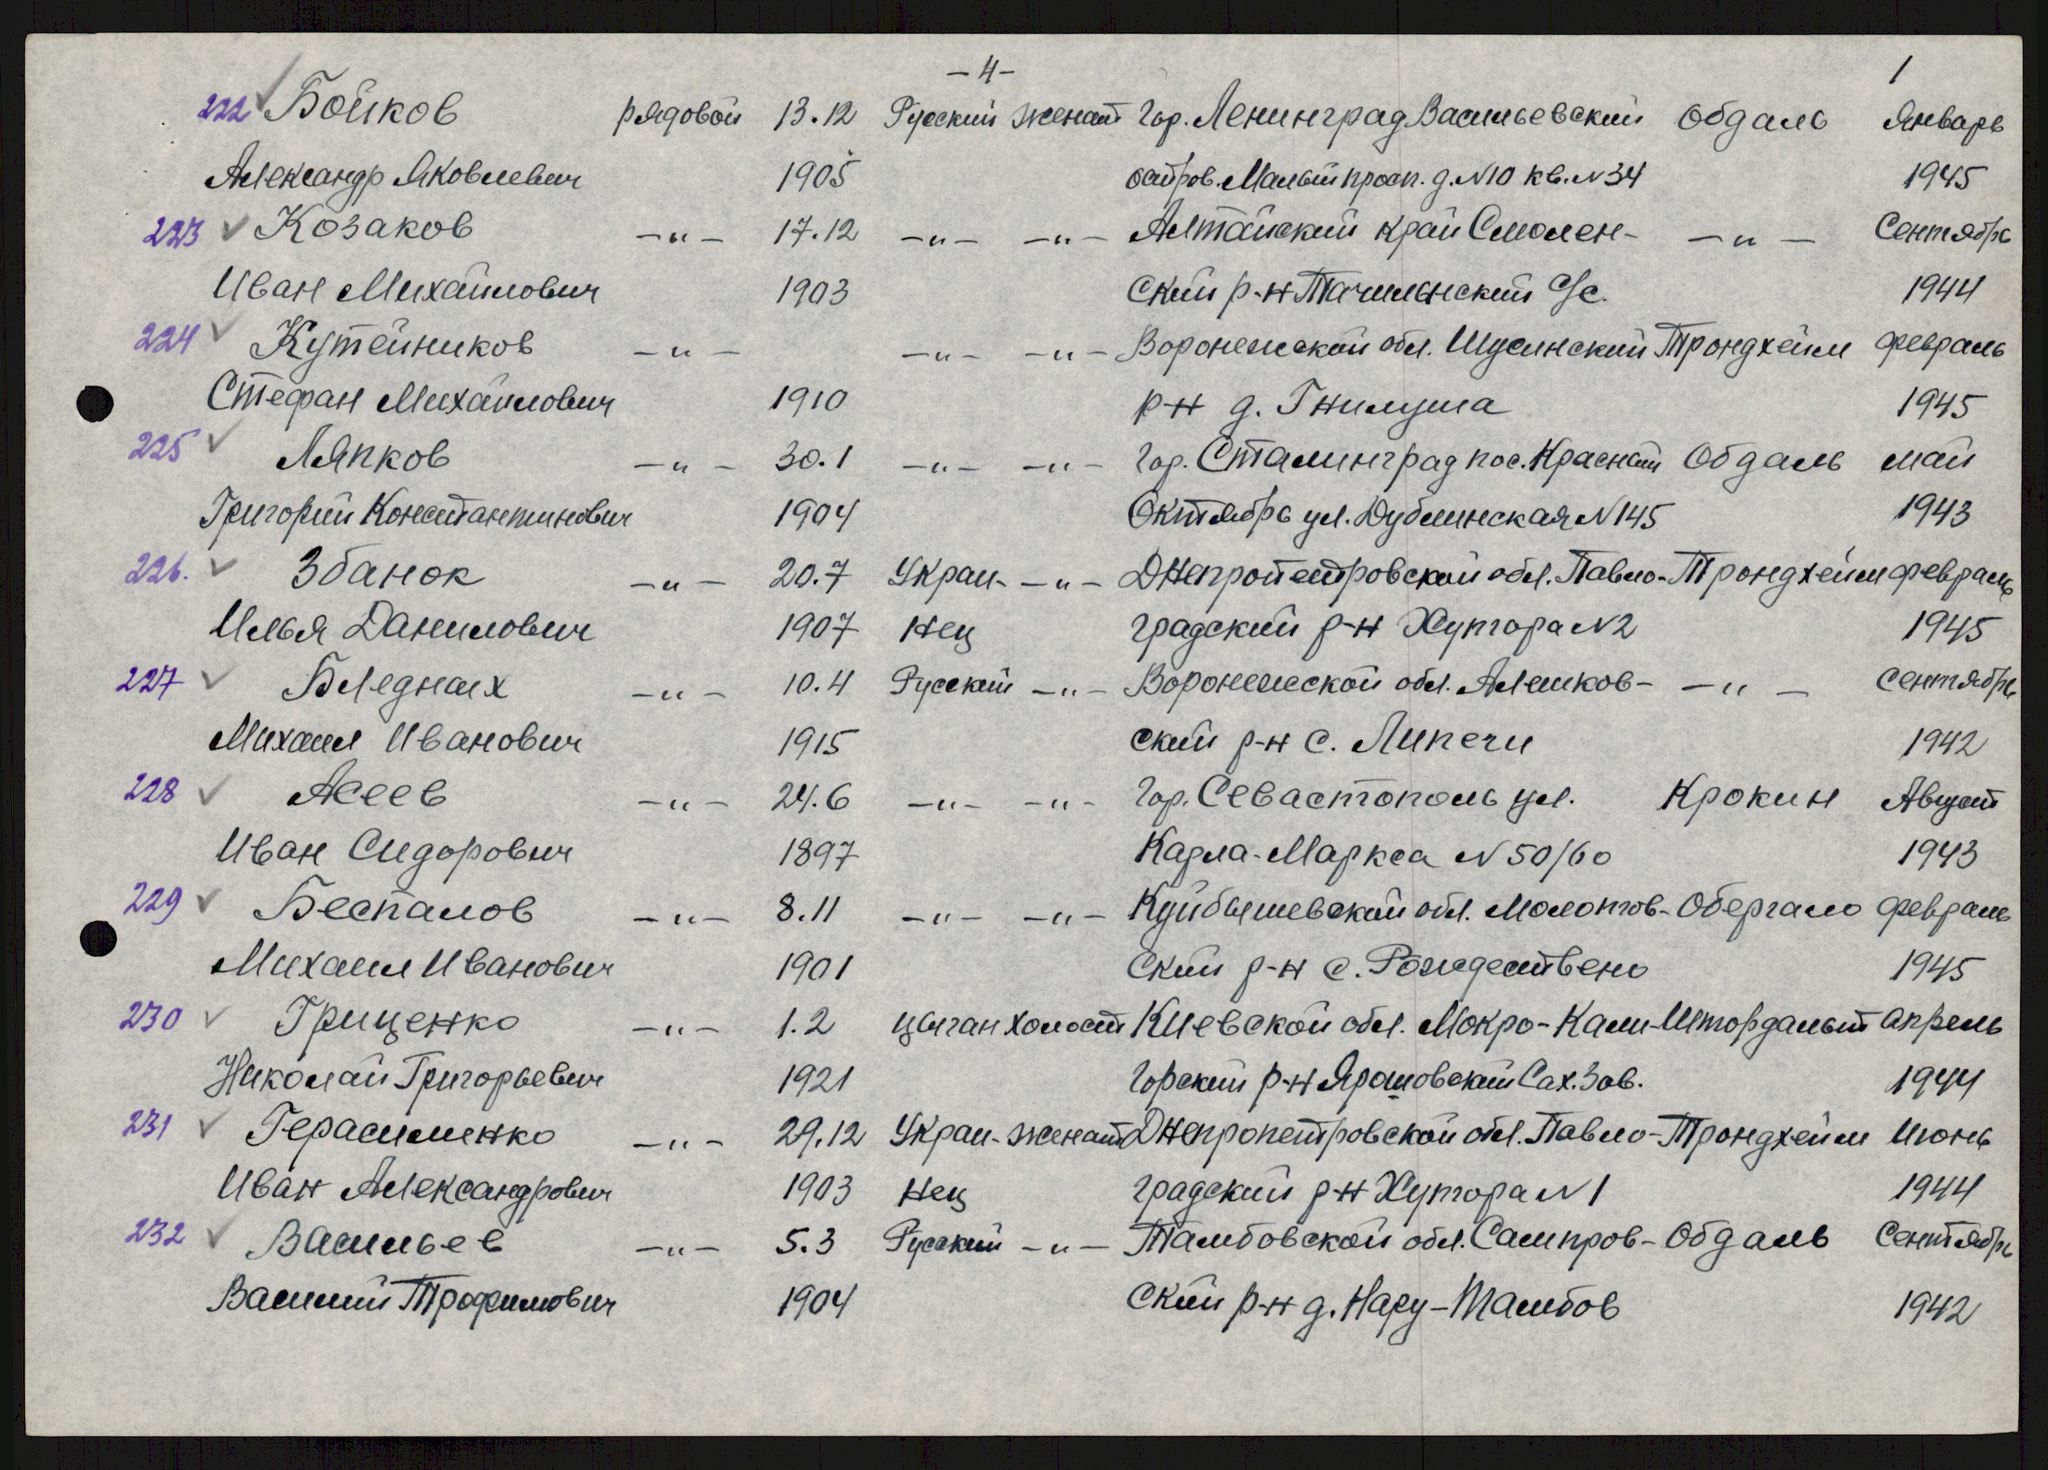 -4- 1
222 Бойков рядовой 13.12 Русский женат Гор. Ленинград Васильевский Обдаль Январь
Александр Яковлевич 1905 остров. Малый просп. д.N10 кв.N34 1945
223 Козаков -"- 17.12 -"- -"- Алтайский край Смолен- -"- Сентябрь
Иван Михайлович 1903 ский р-н Точильнский С/с. 1944
224 Кутейников -"- -"- -"- Воронежской обл. Шусинский Трондхейм февраль
Стефан Михайлович 1910 р-н д. Гнилуша 1945
225 Ляпков -"- 30.1 -"- -"- Гор. Сталинград пос. Красный Обдаль май
Григорий Константинович 1904 Октябрь ул. Дублинская N145 1943
226. Збанок -"- 20.7 Украи- -"- Днепропетровской обл. Павло- Трондхейм февраль
Илья Данилович 1907 нец градский р-н Хутора N2 1945
227 Бледных -"- 10.4 Русский -"- Воронежской обл. Алешков- -"- Сентябрь
Михаил Иванович 1915 ский р-н с. Липечи 1942
228 Асеев -"- 24.6 -"- -"- Гор. Севастополь ул. Крокин Август
Иван Сидорович 1897 Карла-Маркса N 50/60 1943
229 Беспалов -"- 8.11 -"- -"- Куйбышевской обл. Молотов- Обергало февраль
Михаил Иванович 1901 ский р-н с. Рождествено 1945
230 Гриценко -"- 1.2 цыган холост Киевской обл. Мокро-Кали- Штордалын Апрель
Николай Григорьевич 1921 горский р-н Ярошовский Сах. Зав. 1944
231 Герасименко -"- 29.12 Украи- женат Днепропетровской обл. Павло- Трондхейм Июнь
Иван Александрович 1903 нец градский р-н Хутора N1 1944
232 Васильев -"- 5.3 Русский -"- Тамбовской обл. Сампров- Обдаль Сентябрь
Василий Трофимович 1904 ский р-н д. Нару-Тамбов 1942